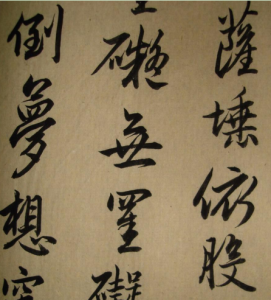 薩埵依般
礙無罣礙
倒夢想究